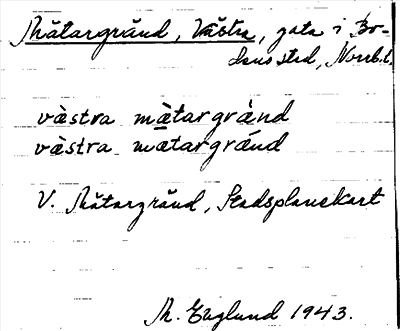 Mätargränd, Västra, gata i Bo-
dens stad, Norrb.l.
vàstra mä̀targrànd
vàstra mä̀targränd
V. Mätargränd, Stadsplanekart
M. Englund 1943.